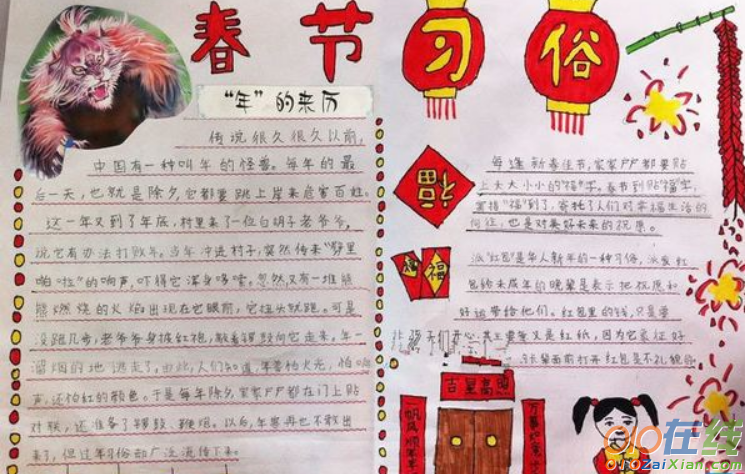 春节习俗
“年”的来历
传说很久很久以前，
中国有一种叫年的怪兽。每年的最
后一天，也就是除夕，它都要跳上岸来危害百姓。
这一年又到了年底，村里来了一位白胡子老爷爷，
说它有办法打败年。当年冲进村子，突然传来“噼里
啪啦”的响声，吓得它浑身哆嗦。忽然又有一堆熊
熊燃烧的火焰出现在它眼前，它扭头就跑。可是
没跑几步，老爷爷身披红袍，敲着锣鼓向它走来。年一
溜烟的地逃走了，由此，人们知道，年害怕火光，怕响
声，还怕红的颜色。于是每年除夕，家家户户都在门上贴
对联，还准备了锣鼓、鞭炮。以后，年兽再也不敢出
来了，但过年习俗却广泛流传下来。
每逢新春佳节，家家户户都要贴
上大大小小的“福”字。春节到贴“福”字，
意指“福”到了，寄托了人们对幸福生活的
向往，也是对美好未来的祝愿。
福
福
派“红包”是华人新年的一种习俗，派发红
包给未成年的晚辈是表示把祝愿和
好运带给他们。红包里的钱，只是要
孩子们开心，其主要意义是红纸，因为它象征好
长辈面前打开红包是不礼貌的
吉星高照
一帆风顺年年
万事如意
OO在线
onozaiXian.com